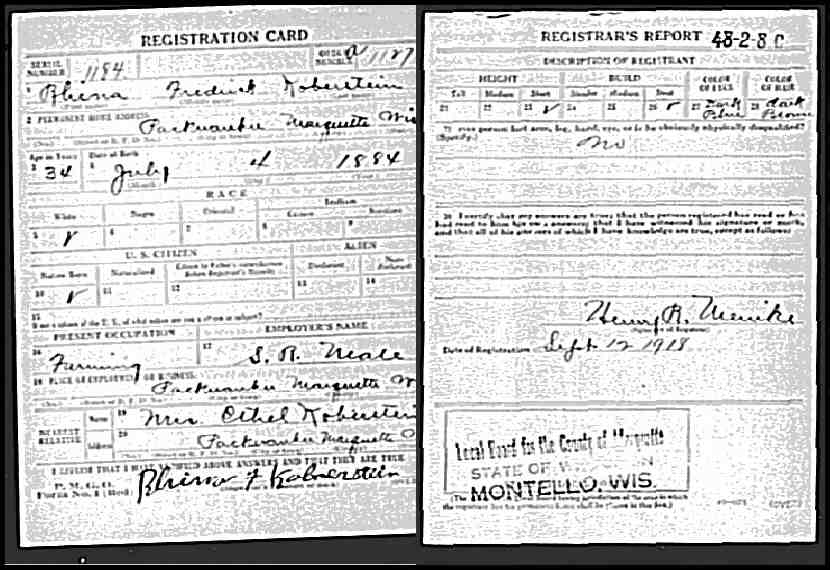 REGISTRATION CARD
SERIAL NUMBER 1184
ORDER NUMBER a 1127
1 Rhino Fredrick Koberstein
2 PERMANENT HOME ADDRESS
Packwaukee Marquette Wis
Age in Years Date of Birth
3 34 4 July 4 1884
RACE
White Negro Oriental Indian
Citizen Noncitizen
5 ✓ 6 7 8 9
U. S. CITIZEN ALIEN
Native Born Naturalized Citizen by Father's Naturalization Before Registrant's Majority Declarant Non-declarant
10 ✓ 11 12 13 14
15
If not a citizen of the U. S., of what nation are you a citizen or subject?
PRESENT OCCUPATION EMPLOYER'S NAME
16 Farming 17 S. R. Neale
18 PLACE OF EMPLOYMENT OR BUSINESS
Packwaukee Marquette W
NEAREST RELATIVE
Name 19 Mrs. Ethel Koberstein
Address 20 Packwaukee Marquette
I AFFIRM THAT I HAVE VERIFIED ABOVE ANSWERS AND THAT THEY ARE TRUE
P. M. G. O.
Form No. 1 (Red)
Rhino F Koberstein
REGISTRAR'S REPORT 48-2-8 C
DESCRIPTION OF REGISTRANT
HEIGHT BUILD COLOR OF EYES COLOR OF HAIR
Tall Medium Short Slender Medium Stout
21 22 23 ✓ 24 25 26 ✓ 27 Dark Blue 28 dark Brown
29 Has person lost arm, leg, hand, eye, or is he obviously physically disqualified?
(Specify.)
no
30 I certify that my answers are true; that the person registered has read or has
had read to him his own answers; that I have witnessed his signature or mark,
and that all of his answers of which I have knowledge are true, except as follows:
Henry R. Meinke
(Signature of Registrar)
Date of Registration Sept 12 1918
Local Board for the County of Marquette
STATE OF WISCONSIN
MONTELLO, WIS.